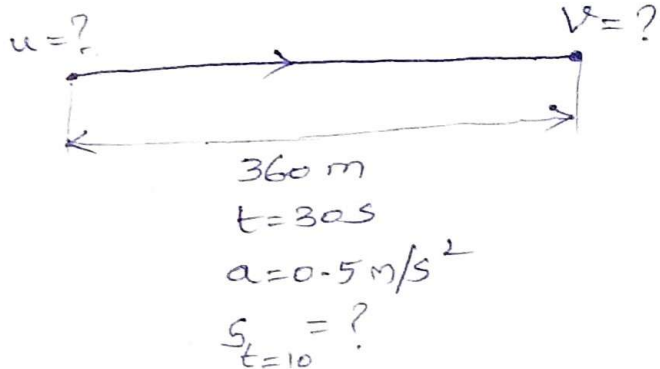 u=?
V=?
360 m
t=30s
a=0.5 m/s²
S_{t=10} = ?